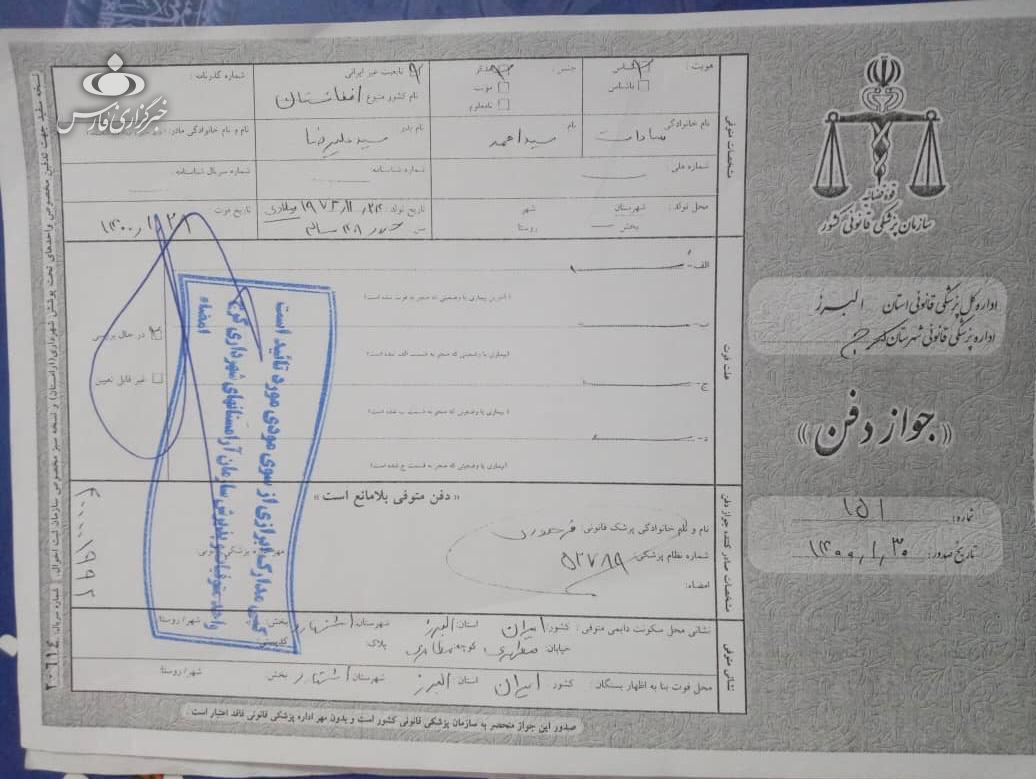 قوه قضائیه
سازمان پزشکی قانونی کشور
اداره کل پزشکی قانونی استان البرز
اداره پزشکی قانونی شهرستان
«جواز دفن»
شماره: ۱۵۱
تاریخ صدور: ۱۴۰۰/۱/۳۰
خبرگزاری فارس
مشخصات متوفی
هویت: شناس ناشناس
جنس: مذکر مونث نامعلوم
تابعیت غیر ایرانی
نام کشور متبوع افغانستان
شماره گذرنامه:
نام خانوادگی سادات
نام سید احمد
نام پدر سید علیرضا
نام و نام خانوادگی مادر:
شماره ملی
شماره شناسنامه:
شماره سریال شناسنامه:
محل تولد: شهرستان شهر
بخش روستا
تاریخ تولد: ۱۹۷۳ میلادی
س حدود ۴۸ سال
تاریخ فوت ۱۴۰۰/۱/۲۸
علت فوت
الف-
(آخرین بیماری یا وضعیتی که منجر به فوت شده است)
ب-
(بیماری یا وضعیتی که منجر به قسمت الف شده است)
ج-
(بیماری یا وضعیتی که منجر به قسمت ب شده است)
د-
(بیماری یا وضعیتی که منجر به قسمت ج شده است)
در حال بررسی
غیر قابل تعیین
مشخصات صادر کننده جواز دفن
«دفن متوفی بلامانع است»
نام و نام خانوادگی پزشک قانونی:
شماره نظام پزشکی: ۵۲۷۸۹
امضاء:
کپی مدارک ابرازی از سوی مودی مورد تائید است
واحد متوفیات و پذیرش سازمان آرامستانهای شهرداری کرج
امضاء
نشانی متوفی
نشانی محل سکونت دایمی متوفی: کشور: ایران استان: البرز شهرستان: اشتهارد بخش: شهر/روستا
خیابان: مطهری کوچه پلاک: کدپستی:
محل فوت بنا به اظهار بستگان: کشور: ایران استان: البرز شهرستان: اشتهارد بخش: شهر/روستا
صدور این جواز منحصر به سازمان پزشکی قانونی کشور است و بدون مهر اداره پزشکی قانونی فاقد اعتبار است.